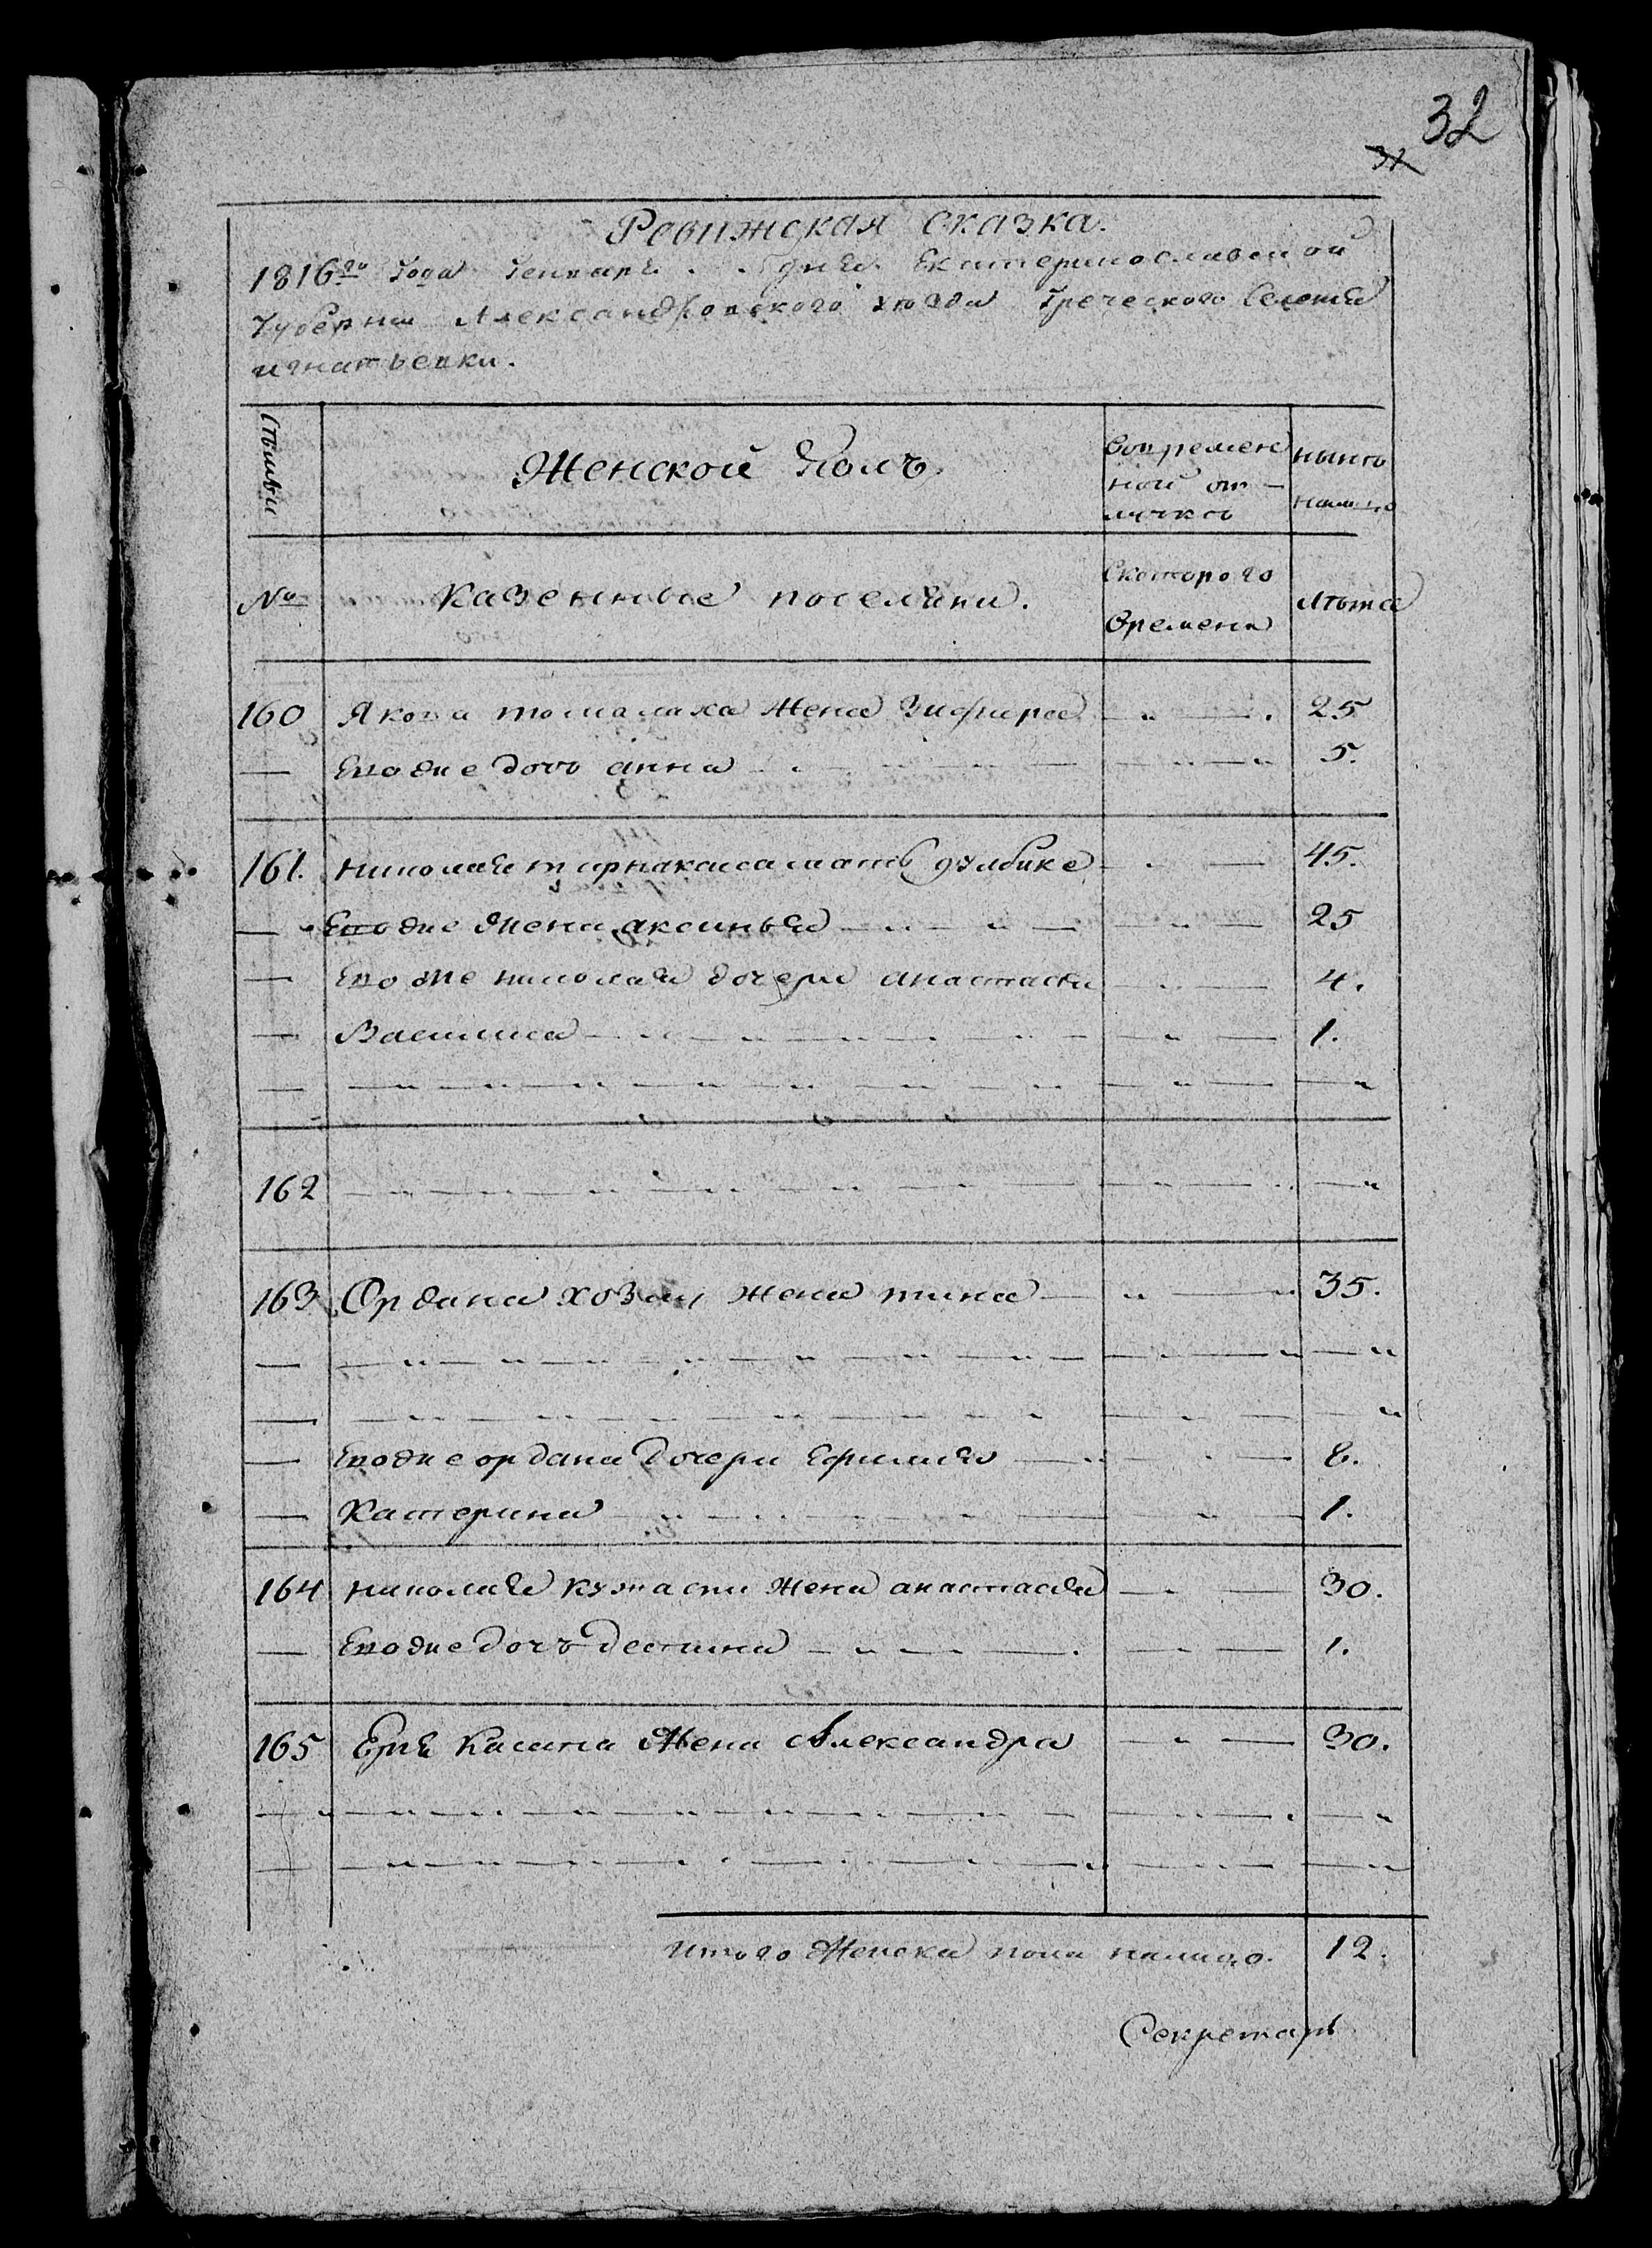 32
31
Ревижская сказка.
1816го Года Генваря дня Екатеринославской
Губернии Александровского уюзда Греческого Селения
игнатьевки.
Стѣмьи
Женской Полъ
Вовремен
ной от-
лучкѣ
нынѣ
налицо
№
Казенные поселяни.
Скоторого
Времени
Лѣта
160 Якова томалаха Жена Зифира 25
Егоже дочь анна 5.
161. николая тирнакаша мать султике 45.
Егоже Жена аксинья 25
Егоже николая дочери анастасия 4.
Василиса 1.
162
163 Ордана хозми жена тина 35.
Егоже ордана Дочери Ефимия 8.
Катерина 1.
164 николая Жена анастасия 30.
Егоже дочъ деспина 1.
165 Жена Александра 30.
Итого Женска пола налицо. 12.
Секретарь